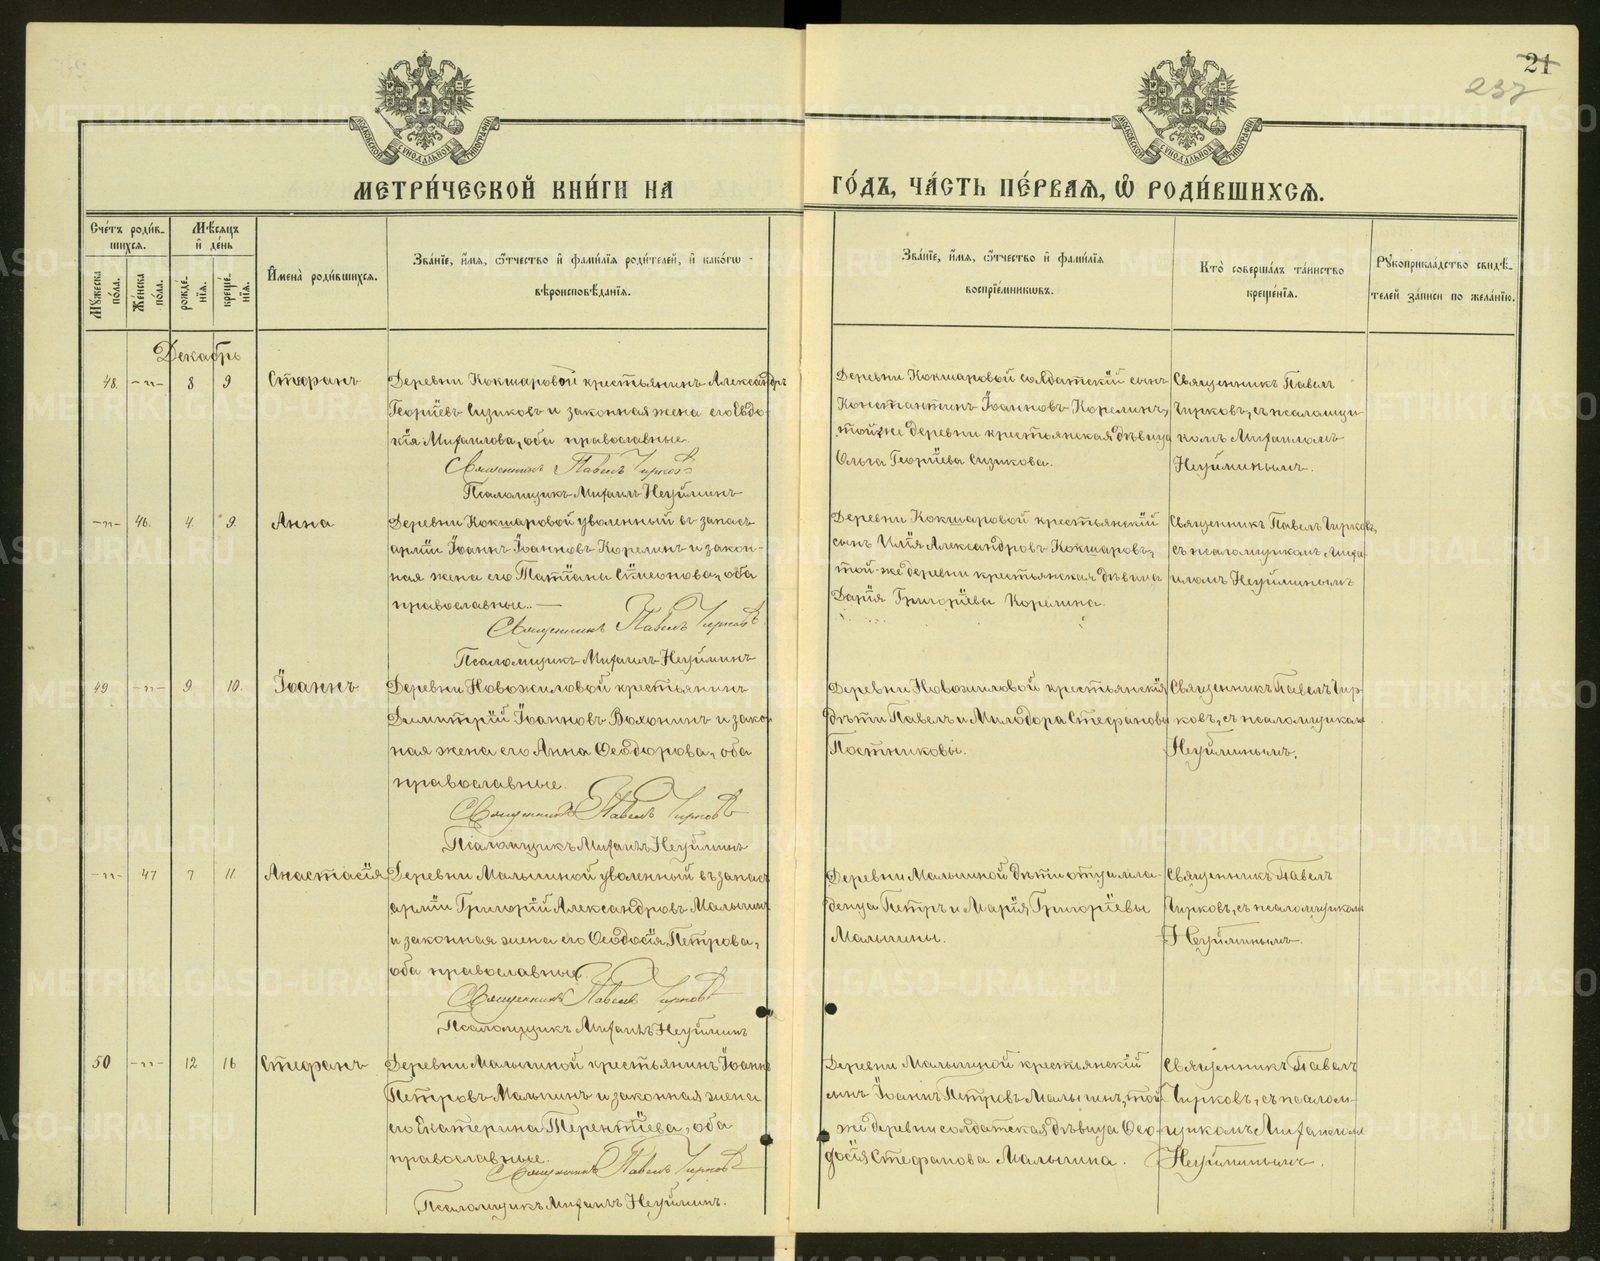 21
237
МЕТРИ́ЧЕСКОЙ КНИ́ГИ НА ГО́ДЪ, ЧА́СТЬ ПЕ́РВАѦ, Ѽ РОДИ́ВШИХСѦ.
Сче́тъ роди́в-
шихсѧ.
Мѣ́сѧцъ
и҆ де́нь
Мꙋ́жеска
по́ла.
Же́нска
по́ла.
рожде́-
нїѧ.
креще́-
нїѧ.
И҆мена̀ роди́вшихсѧ.
Зва́нїе, и҆́мѧ, ѻ҆́тчество и҆ фами́лїѧ роди́телей, и҆ како́гѡ
вѣроисповѣ́данїѧ.
Зва́нїе, и҆́мѧ, ѻ҆́тчество и҆ фами́лїѧ
воспрїе́мникѡвъ.
Кто̀ соверша́лъ та́инство
креще́нїѧ.
Рꙋкоприкла́дство свидѣ́-
телей за́писи по жела́нїю.
Декабрь
48. -„- 8 9 Стефанъ
Деревни Кокшаровой крестьянинъ Александръ
Георгіевъ Сизиковъ и законная жена его Евдо-
кія Михаилова, оба православные.
Священникъ Павелъ Чирковъ
Псаломщикъ Михаилъ Неуйминъ
Деревни Кокшаровой солдатскій сынъ
Константинъ Іоанновъ Корелинъ,
той же деревни крестьянская дѣвица
Ольга Георгіева Сизикова.
Священникъ Павелъ
Чирковъ, съ псаломщи-
комъ Михаиломъ
Неуйминымъ.
-„- 46. 4. 9. Анна
Деревни Кокшаровой уволенный въ запасъ
арміи Іоаннъ Іоанновъ Корелинъ и закон-
ная жена его Татіана Сѵмеонова, оба
православные. —
Священникъ Павелъ Чирковъ
Псаломщикъ Михаилъ Неуйминъ
Деревни Кокшаровой крестьянскій
сынъ Илія Александровъ Кокшаровъ,
той-же деревни крестьянская дѣвица
Дарія Григоріева Корелина.
Священникъ Павелъ Чирковъ,
съ псаломщикомъ Миха-
иломъ Неуйминымъ
49 -„- 9 10. Іоаннъ
Деревни Новожиловой крестьянинъ
Димитрій Іоанновъ Волонинъ и закон
ная жена его Анна Ѳеодорова, оба
православные.
Священникъ Павелъ Чирковъ
Псаломщикъ Михаилъ Неуйминъ
Деревни Новожиловой крестьянскія
дѣти Павелъ и Милодора Стефановы
Постниковы.
Священникъ Павелъ Чир-
ковъ, съ псаломщикомъ
Неуйминымъ.
-„- 47 7 11 Анастасія
Деревни Малыгиной уволенный въ запасъ
арміи Григорій Александровъ Малыгинъ
и законная жена его Ѳеодосія Петрова,
оба православные.
Священникъ Павелъ Чирковъ
Псаломщикъ Михаилъ Неуйминъ
Деревни Малыгиной дѣти отца мла-
денца Петръ и Марія Григоріевы
Малыгины.
Священникъ Павелъ
Чирковъ, съ псаломщикомъ
Неуйминымъ.
50 -„- 12 16 Стефанъ
Деревни Малыгиной крестьянинъ Іоаннъ
Петровъ Малыгинъ и законная жена
его Екатерина Терентіева, оба
православные.
Священникъ Павелъ Чирковъ
Псаломщикъ Михаилъ Неуйминъ.
Деревни Малыгиной крестьянскій
Іоаннъ Петровъ Малыгинъ, той
же деревни солдатская дѣвица Ѳео-
досія Стефанова Малыгина.
Священникъ Павелъ
Чирковъ, съ псалом-
щикомъ Михаиломъ
Неуйминымъ.
METRIKI.GASO-URAL.RU